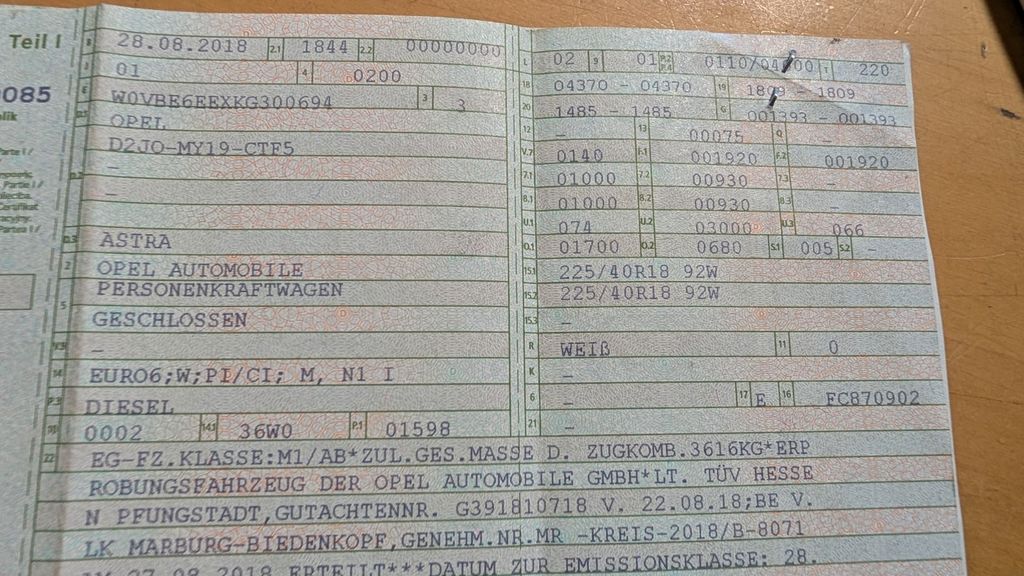 Teil I
085
B 28.08.2018 2.1 1844 2.2 00000000
J 01 4 0200
E W0VBE6EEXKG300694 3 3
D.1 OPEL
D2JO-MY19-CTF5
D.2 –
–
D.3 ASTRA
2 OPEL AUTOMOBILE
5 PERSONENKRAFTWAGEN
GESCHLOSSEN
V.9 –
14 EURO6;W;PI/CI; M, N1 I
P.3 DIESEL
10 0002 14.1 36W0 P.1 01598
L 02 9 01 P.2 P.4 0110/04 00 T 220
18 04370 – 04370 19 1809 – 1809
20 1485 – 1485 G 001393 – 001393
12 – 13 00075 Q –
V.7 0140 F.1 001920 F.2 001920
7.1 01000 7.2 00930 7.3 –
8.1 01000 8.2 00930 8.3 –
U.1 074 U.2 03000 U.3 066
O.1 01700 O.2 0680 S.1 005 S.2 –
15.1 225/40R18 92W
15.2 225/40R18 92W
15.3 –
R WEIß 11 0
K –
6 – 17 E 16 FC870902
21 –
22 EG-FZ.KLASSE:M1/AB*ZUL.GES.MASSE D. ZUGKOMB.3616KG*ERP
ROBUNGSFAHRZEUG DER OPEL AUTOMOBILE GMBH*LT. TÜV HESSE
N PFUNGSTADT,GUTACHTENNR. G391810718 V. 22.08.18;BE V.
LK MARBURG-BIEDENKOPF,GENEHM.NR.MR -KREIS-2018/B-8071
27.08.2018 ERTEILT***DATUM ZUR EMISSIONSKLASSE: 28.